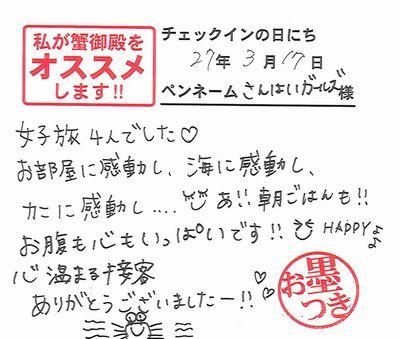 私が蟹御殿を
オススメ
します!!
チェックインの日にち
27年 3月 17日
ペンネーム さんはいガールズ様
女子旅 4人でした♡
お部屋に感動し、海に感動し、
カニに感動し.... あ!! 朝ごはんも!!
お腹も心もいっぱいです!! HAPPY♪♪
心温まる接客
ありがとうございましたー!!
お墨つき